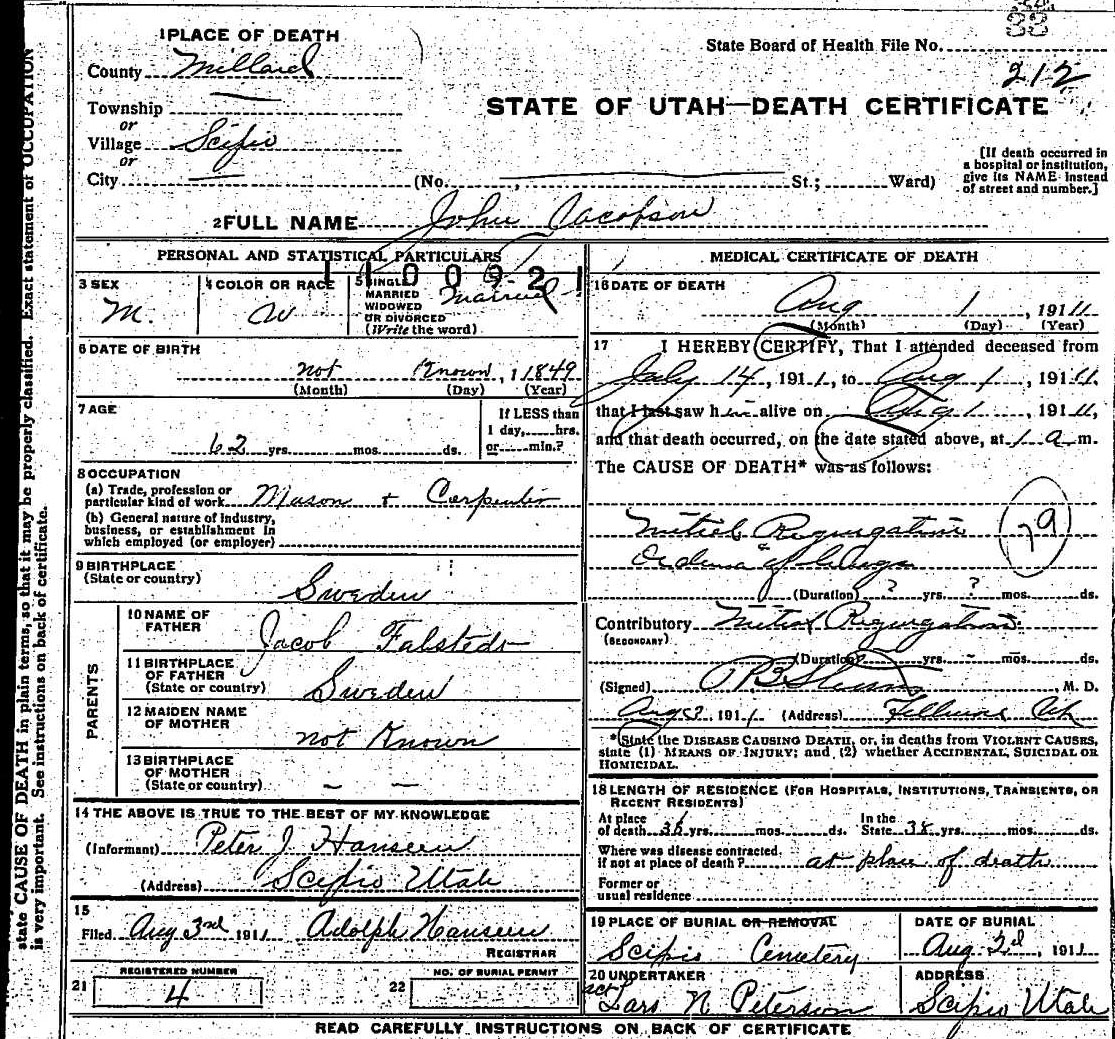 state CAUSE OF DEATH in plain terms, so that it may be properly classified. Exact statement of OCCUPATION
is very important. See instructions on back of certificate.
88
1 PLACE OF DEATH
State Board of Health File No.
County Millard
212
STATE OF UTAH—DEATH CERTIFICATE
Township
or
Village Scipio
or
City (No. , St.; Ward)
[If death occurred in
a hospital or institution,
give its NAME instead
of street and number.]
2 FULL NAME John Jacobson
PERSONAL AND STATISTICAL PARTICULARS
1100921
3 SEX
M.
4 COLOR OR RACE
W
5 SINGLE
MARRIED
WIDOWED
OR DIVORCED
(Write the word)
Married
6 DATE OF BIRTH
not Known, 1 1849
(Month) (Day) (Year)
7 AGE
62 yrs. mos. ds.
If LESS than
1 day, hrs.
or min.?
8 OCCUPATION
(a) Trade, profession or
particular kind of work Mason + Carpenter
(b) General nature of industry,
business, or establishment in
which employed (or employer)
9 BIRTHPLACE
(State or country)
Sweden
PARENTS
10 NAME OF
FATHER
Jacob Falstedt
11 BIRTHPLACE
OF FATHER
(State or country)
Sweden
12 MAIDEN NAME
OF MOTHER
not Known
13 BIRTHPLACE
OF MOTHER
(State or country) — —
14 THE ABOVE IS TRUE TO THE BEST OF MY KNOWLEDGE
(Informant) Peter J Hansen
(Address) Scipio Utah
15
Filed Aug 3rd 1911 Adolph Hansen
REGISTRAR
21 REGISTERED NUMBER
4
22 NO. OF BURIAL PERMIT
MEDICAL CERTIFICATE OF DEATH
16 DATE OF DEATH
Aug 1, 1911
(Month) (Day) (Year)
17 I HEREBY CERTIFY, That I attended deceased from
July 14, 1911, to Aug 1, 1911,
that I last saw him alive on Aug 1, 1911,
and that death occurred, on the date stated above, at 1 a m.
The CAUSE OF DEATH* was as follows:
Mitral Regurgitation
&
79
(Duration) ? yrs. ? mos. ds.
Contributory Mitral Regurgitation
(SECONDARY)
(Duration) ? yrs. - mos. ds.
(Signed) M. D.
Aug 2, 1911 (Address) Fillmore Ut
*State the DISEASE CAUSING DEATH, or, in deaths from VIOLENT CAUSES,
state (1) MEANS OF INJURY; and (2) whether ACCIDENTAL, SUICIDAL OR
HOMICIDAL.
18 LENGTH OF RESIDENCE (FOR HOSPITALS, INSTITUTIONS, TRANSIENTS, OR
RECENT RESIDENTS)
At place
of death 36 yrs. mos. ds.
In the
State 38 yrs. mos. ds.
Where was disease contracted,
if not at place of death? at place of death
Former or
usual residence
19 PLACE OF BURIAL OR REMOVAL
Scipio Cemetery
DATE OF BURIAL
Aug 2d, 1911
20 UNDERTAKER
act Lars N Peterson
ADDRESS
Scipio Utah
READ CAREFULLY INSTRUCTIONS ON BACK OF CERTIFICATE